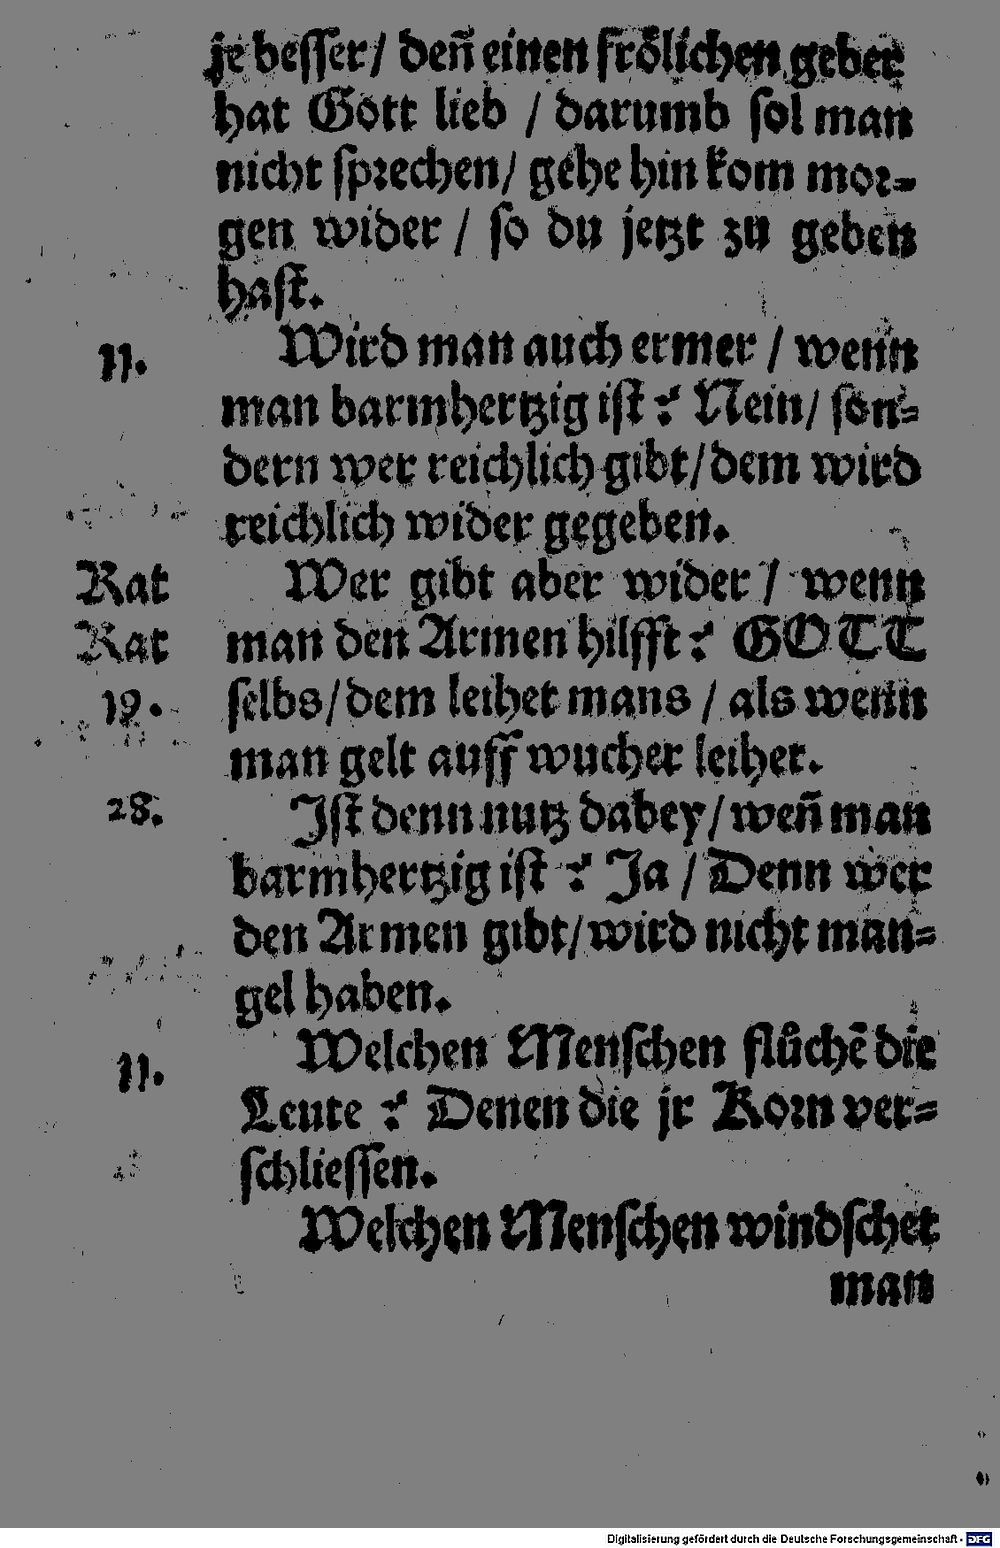 je besser / deñ einen frölichen geber
hat Gott lieb / darumb sol man
nicht sprechen / gehe hin kom mor=
gen wider / so du jetzt zu geben
hast.
11.
Wird man auch ermer / wenn
man barmhertzig ist? Nein / son=
dern wer reichlich gibt / dem wird
reichlich wider gegeben.
Rat Wer gibt aber wider / wenn
Rat man den Armen hilfft? GOTT
19. selbs / dem leihet mans / als wenn
man gelt auff wucher leihet.
28. Ist denn nutz dabey / weñ man
barmhertzig ist? Ja / Denn wer
den Armen gibt / wird nicht man=
gel haben.
Welchen Menschen flůchẽ die
11.
Leute? Denen die jr Korn ver=
schliessen.
Welchen Menschen windschet
man
Digitalisierung gefördert durch die Deutsche Forschungsgemeinschaft - DFG